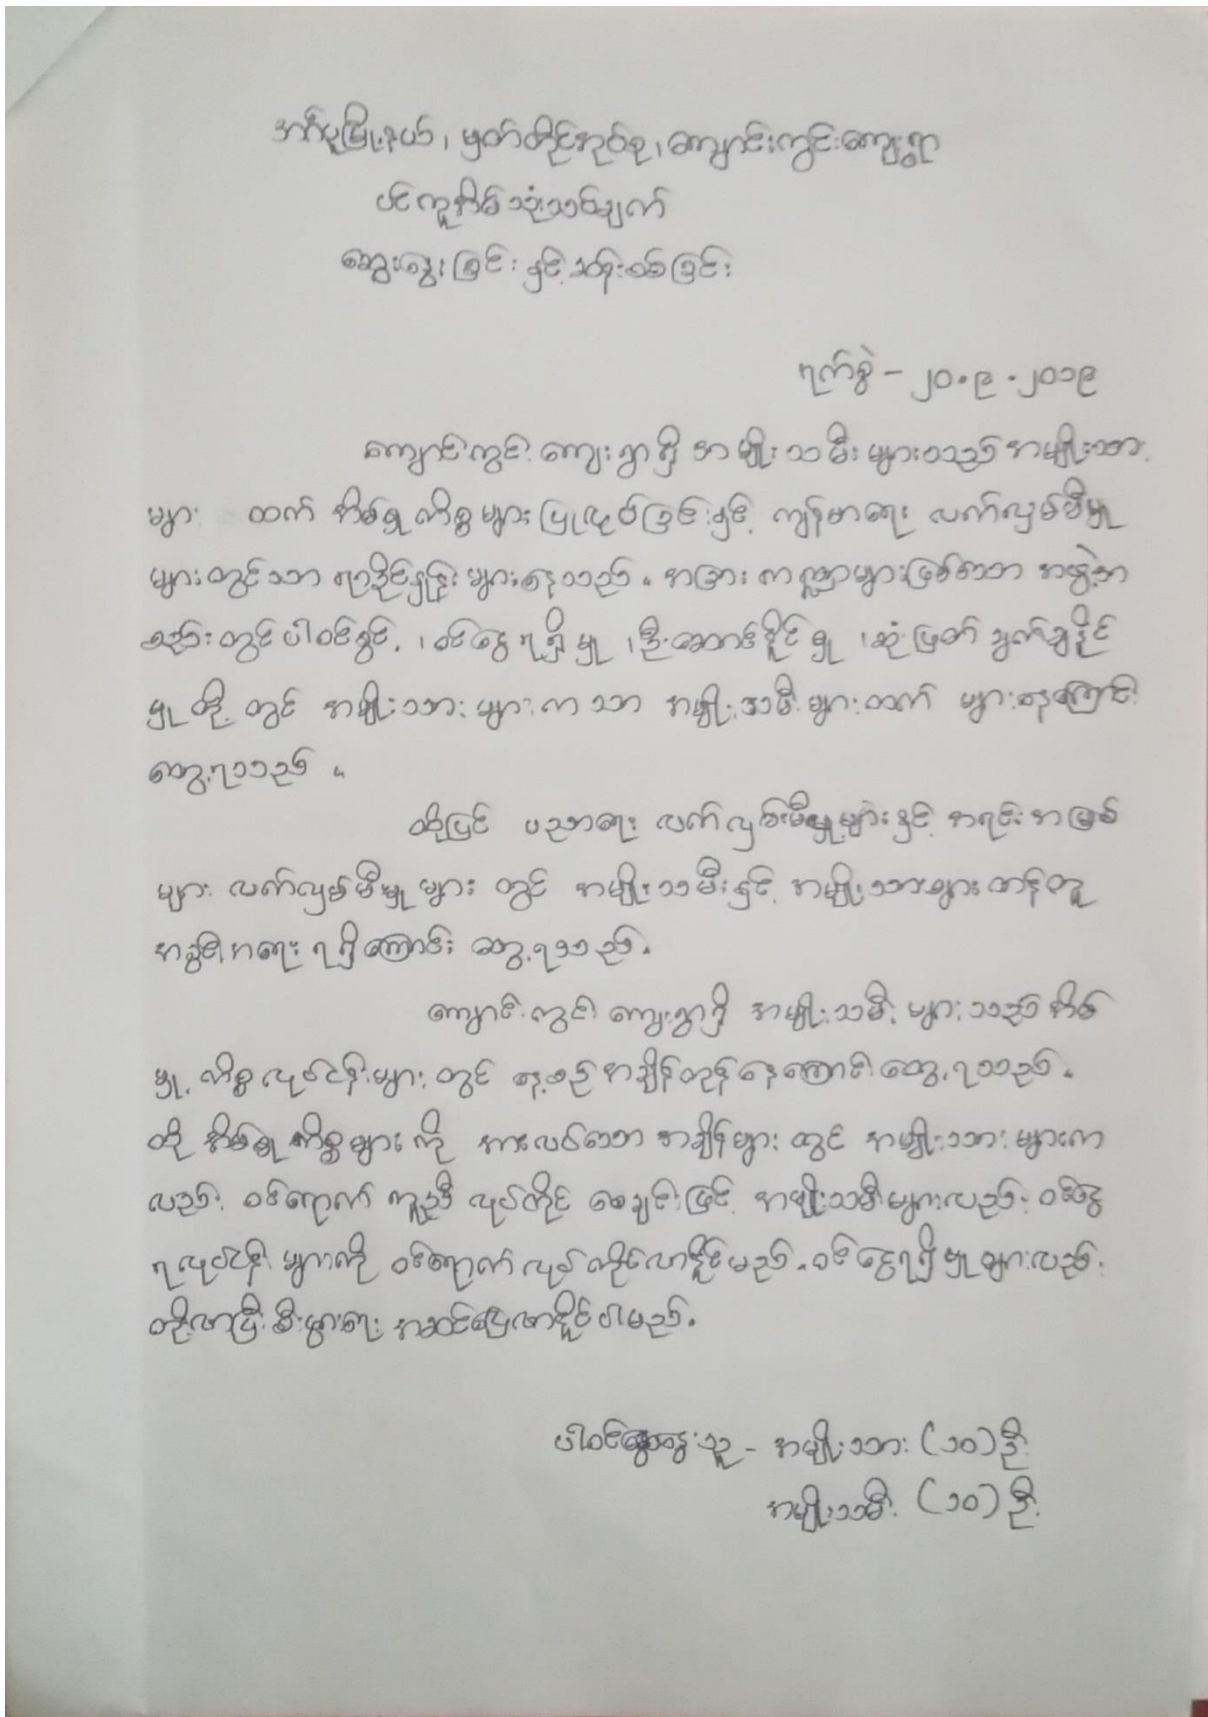 အင်ပူမြို့နယ်၊ မှတ်တိုင်အုပ်စု၊ ကျောင်းကွင်းကျေးရွာ
ပင်ကူအိမ်သုံးသပ်ချက်
ဆွေးနွေးခြင်းနှင့်ဆန်းစစ်ခြင်း
ရက်စွဲ - ၂၀.၉.၂၀၁၉
ကျောင်းကွင်းကျေးရွာရှိ အမျိုးသမီးများသည် အမျိုးသား
များ ထက် အိမ်မှုကိစ္စများပြုလုပ်ခြင်းနှင့် ကျန်းမာရေး လက်လှမ်းမီမှု
များတွင်သာ ရာခိုင်နှုန်းများနေသည်။ အခြားကဏ္ဍများဖြစ်သော အဖွဲ့အ
စည်းတွင်ပါဝင်ခွင့်၊ ဝင်ငွေရရှိမှု၊ ဦးဆောင်နိုင်မှု၊ ဆုံးဖြတ်ချက်ချနိုင်
မှုတို့တွင် အမျိုးသားများကသာ အမျိုးသမီးများထက် များနေကြောင်း
တွေ့ရသည်။
ထို့ပြင် ပညာရေး လက်လှမ်းမီမှုများနှင့် အရင်းအမြစ်
များ လက်လှမ်းမီမှုများတွင် အမျိုးသမီးနှင့် အမျိုးသားများတန်းတူ
အခွင့်အရေး ရရှိကြောင်း တွေ့ရသည်။
ကျောင်းကွင်းကျေးရွာရှိ အမျိုးသမီးများသည် အိမ်
မှုကိစ္စလုပ်ငန်းများတွင် နေ့စဉ်အချိန်ကုန်နေကြောင်းတွေ့ရသည်။
ထိုအိမ်မှုကိစ္စများကို အားလပ်သောအချိန်များတွင် အမျိုးသားများက
လည်း ဝင်ရောက် ကူညီလုပ်ကိုင်စေခြင်းဖြင့် အမျိုးသမီးများလည်း ဝင်ငွေ
ရလုပ်ငန်းများကို ဝင်ရောက်လုပ်ကိုင်လာနိုင်မည်။ ဝင်ငွေရရှိမှုများလည်း
တိုးလာပြီး စီးပွားရေး အဆင်ပြေလာနိုင်ပါမည်။
ပါဝင်ဆွေးနွေးသူ - အမျိုးသား (၁၀) ဦး
အမျိုးသမီး (၁၀) ဦး